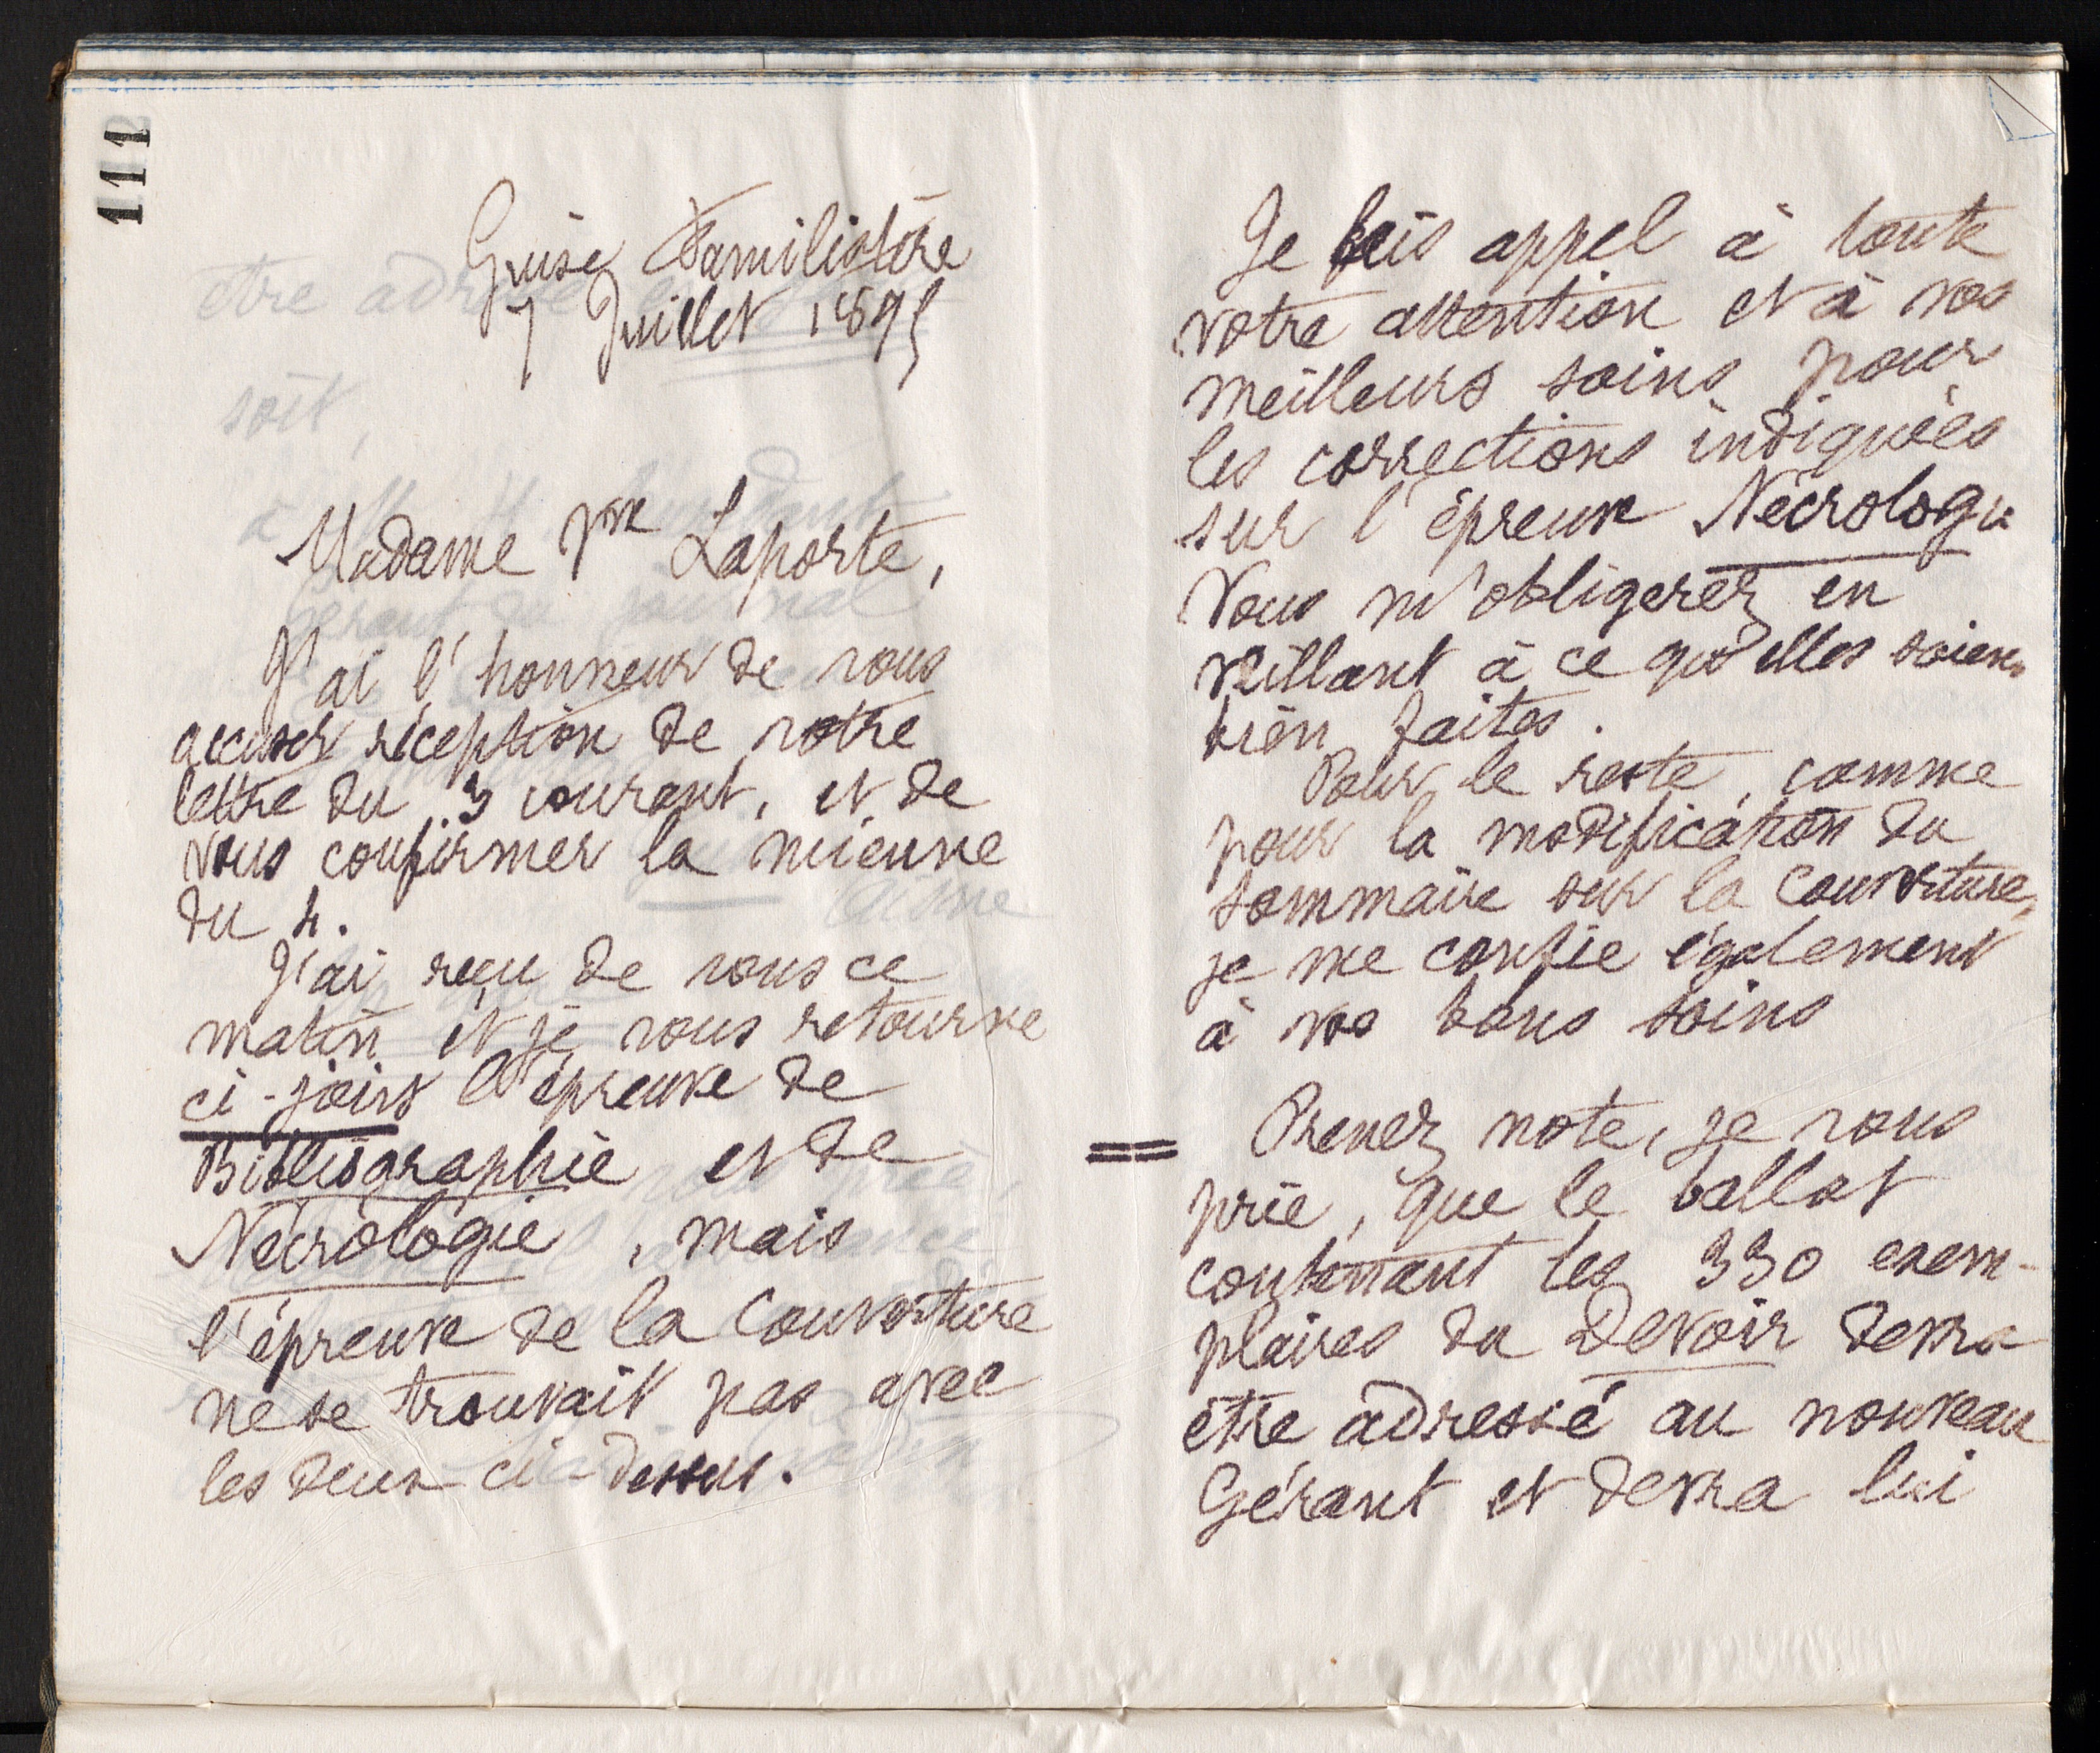 111
Guise Familistère
7 Juillet 1895
Madame Vve Laporte,
J'ai l'honneur de vous
accuser réception de votre
lettre du 3 courant, et de
vous confirmer la mienne
du 4.
J'ai reçu de vous ce
matin et je vous retourne
ci-joint l'épreuve de
Bibliographie et de
Nécrologie, mais
l'épreuve de la Couverture
ne se trouvait pas avec
les deux ci-dessus.
Je fais appel à toute
votre attention et à vos
meilleurs soins pour
les corrections indiquées
sur l'épreuve Nécrologie
Vous m'obligerez en
veillant à ce qu'elles soient
bien faites.
Pour le reste, comme
pour la modification du
sommaire sur la Couverture,
je me confie également
à vos bons soins
= Prenez note, je vous
prie, que le ballot
contenant les 330 exem-
plaires du Devoir devra
être adressé au nouveau
Gérant et devra lui